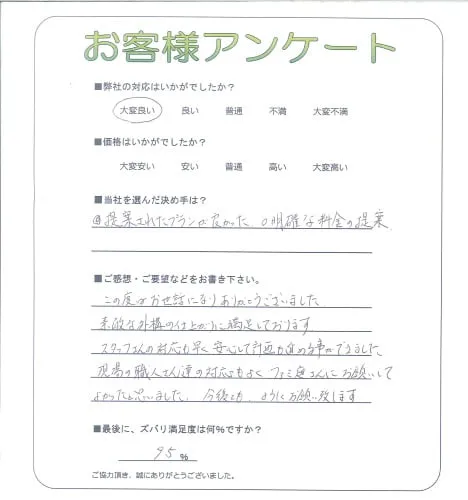 お客様アンケート
■弊社の対応はいかがでしたか？
大変良い 良い 普通 不満 大変不満
■価格はいかがでしたか？
大変安い 安い 普通 高い 大変高い
■当社を選んだ決め手は？
提案されたプランが良かった ○明確な料金の提案
■ご感想・ご要望などをお書き下さい。
この度はお世話になりありがとうございました
素敵な外構の仕上がりに満足しております
スタッフさんの対応も早く安心して計画
現場の職人さん達の対応もよく ファミ庭さんにお願いして
よかったと思いました。今後とも、よろしくお願い致します
■最後に、ズバリ満足度は何％ですか？
95％
ご協力頂き、誠にありがとうございました。